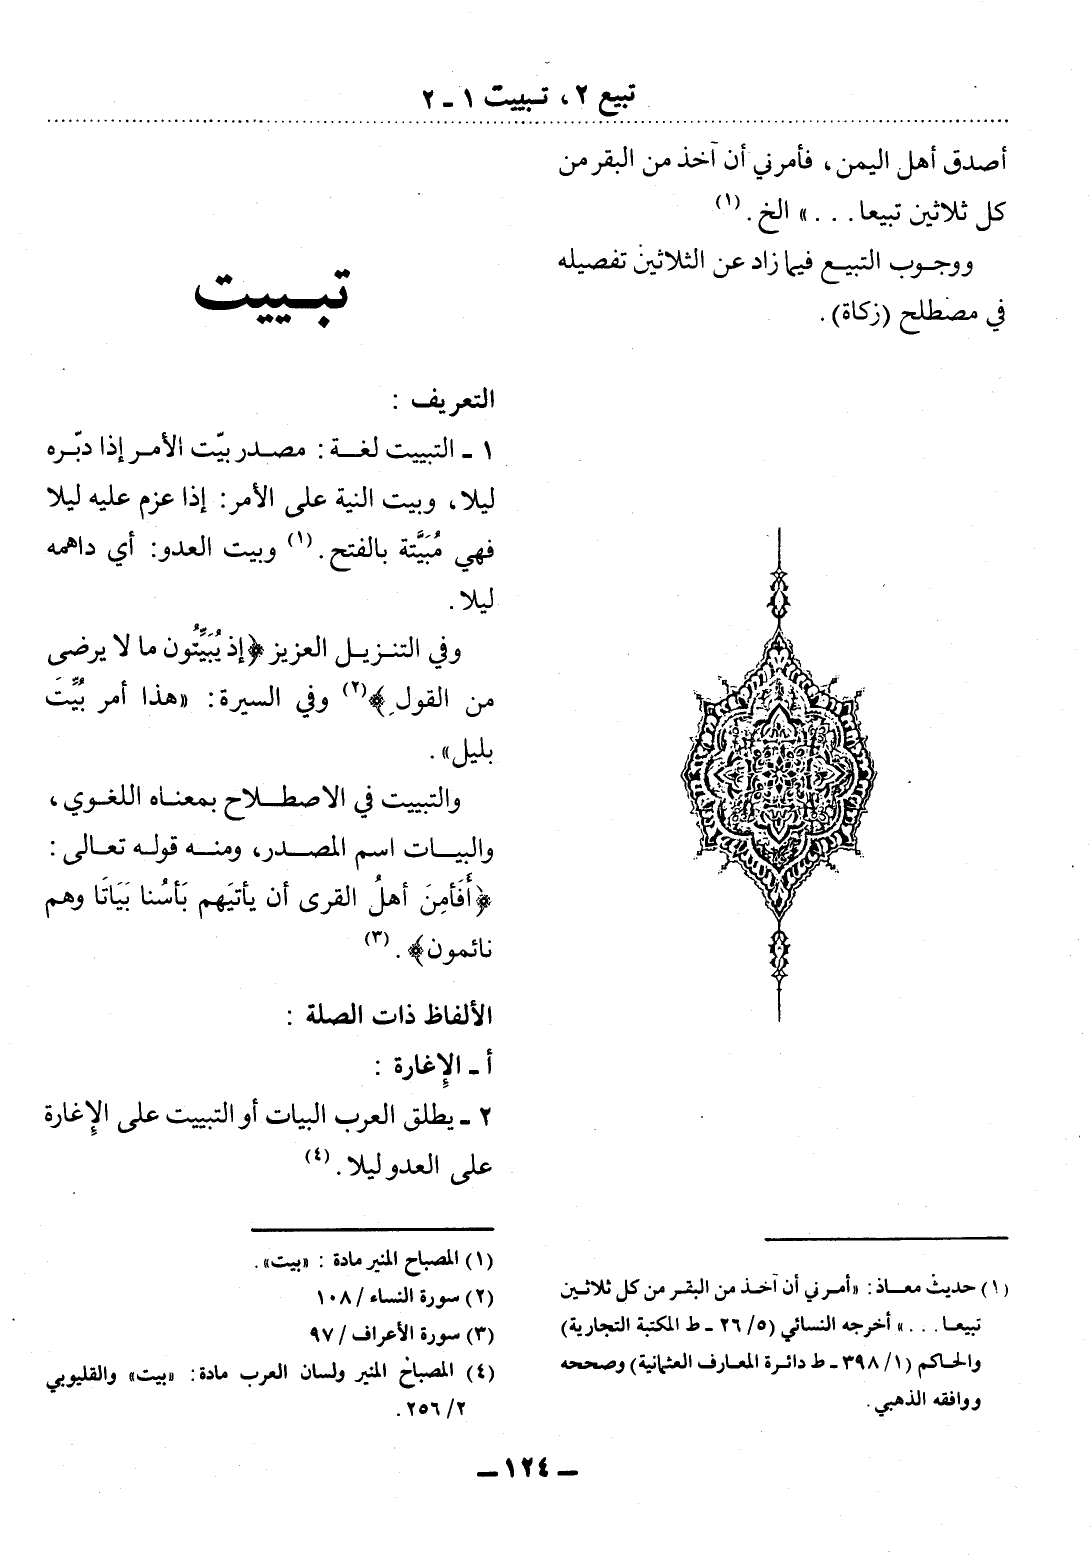 تبيع ٢، تـبييت ١ ـ ٢
أصدق أهل اليمن، فأمرني أن آخذ من البقر من
كل ثلاثين تبيعا. . .» الخ. (١)
ووجـوب التبيـع فيما زاد عن الثلاثين تفصيله
في مصطلح (زكاة).
(١) حديث معـاذ: «أمـرني أن آخـذ من البقـر من كل ثلاثـين
تبيعـا. . .» أخرجه النسائي (٥/ ٢٦ ـ ط المكتبة التجارية)
والحاكم (١/ ٣٩٨ ـ ط دائـرة المعـارف العثمانية) وصححه
ووافقه الذهبي.
تبـييت
التعريف :
١ ـ التبييت لغـة: مصـدر بيّت الأمـر إذا دبّره
ليلا، وبيت النية على الأمر: إذا عزم عليه ليلا
فهي مُبَيَّتة بالفتح. (١) وبيت العدو: أي داهمه
ليلا.
وفي التنـزيـل العزيز ﴿إذ يُبَيِّتُون ما لا يرضى
من القولِ﴾(٢) وفي السيرة: «هذا أمر بُيِّتَ
بليل».
والتبييت في الاصطـلاح بمعنـاه اللغـوي،
والبيـات اسم المصـدر، ومنـه قولـه تعـالى:
﴿أَفَأمِنَ أهلُ القرى أن يأتيَهم بَأسُنا بَيَاتَا وهم
نائمون﴾. (٣)
الألفاظ ذات الصلة :
أ ـ الإغارة :
٢ ـ يطلق العرب البيات أو التبييت على الإغارة
على العدو ليلا. (٤)
(١) المصباح المنير مادة : «بيت».
(٢) سورة النساء / ١٠٨
(٣) سورة الأعراف / ٩٧
(٤) المصباح المنير ولسان العرب مادة: «بيت» والقليوبي
٢/ ٢٥٦.
ـ ١٢٤ ـ